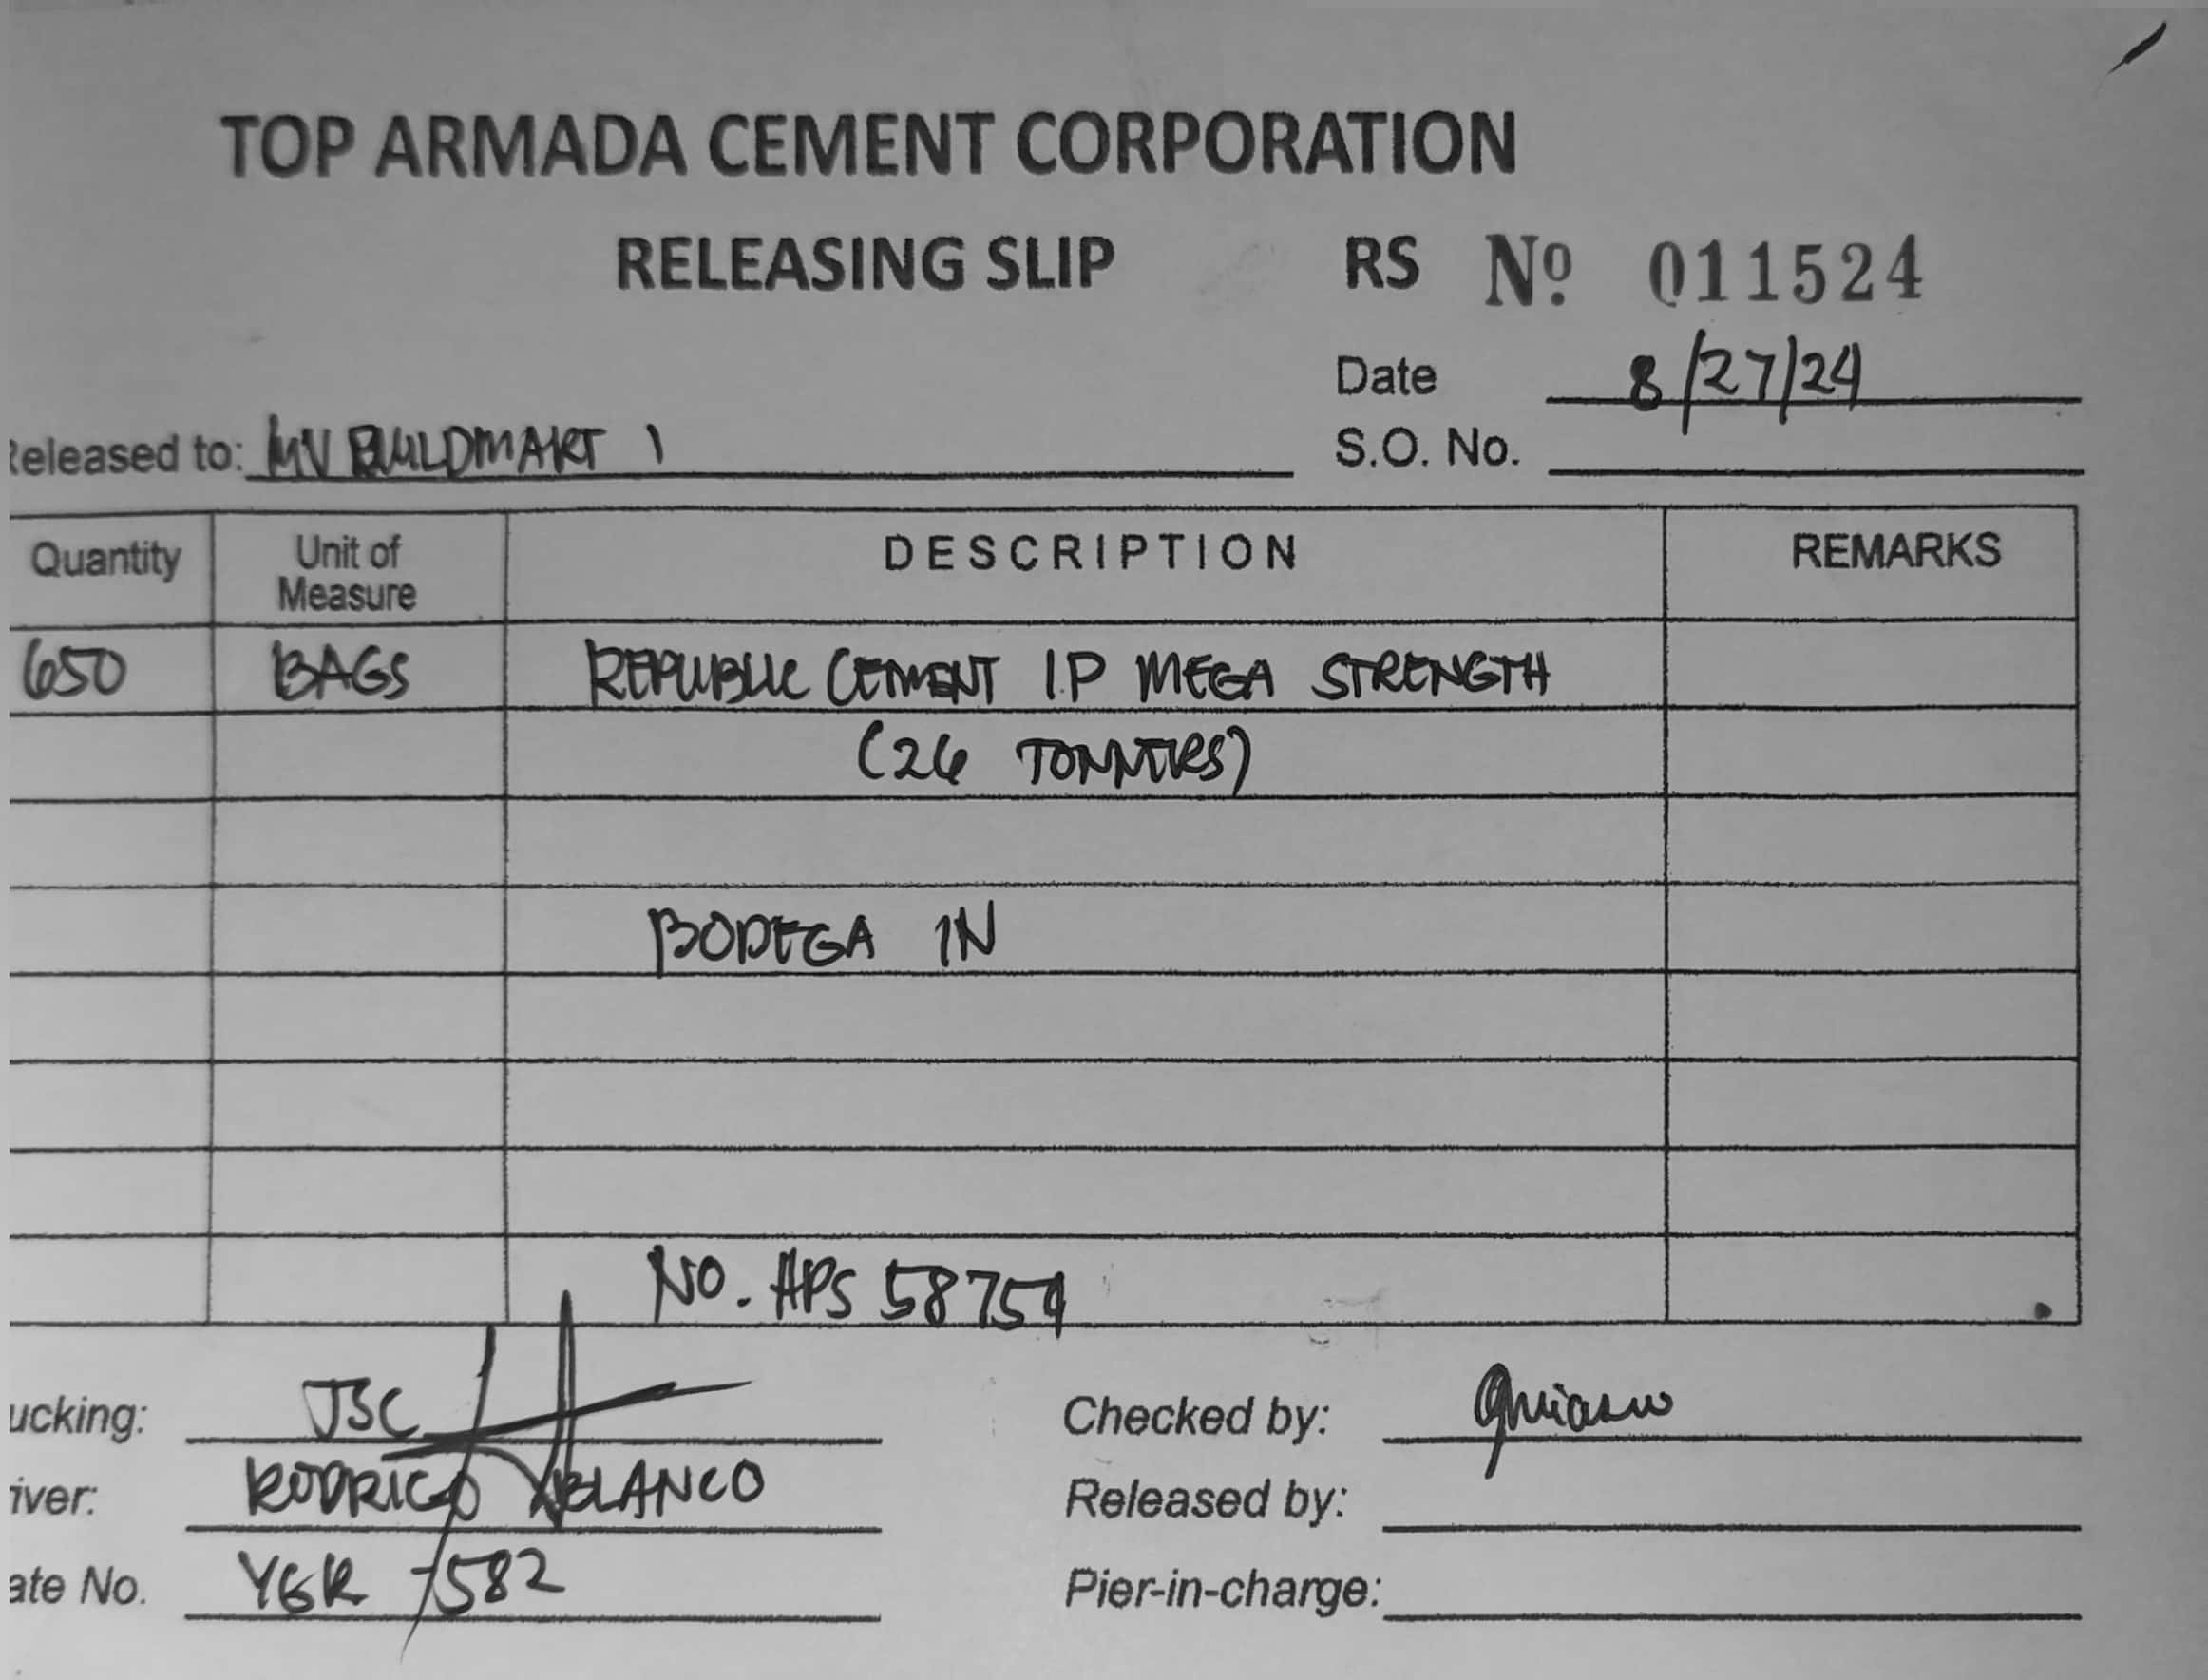 TOP ARMADA CEMENT CORPORATION
RELEASING SLIP RS Nº 011524
Date 8/27/24
Released to: MV BUILDMART 1 S.O. No.
Quantity Unit of Measure DESCRIPTION REMARKS
650 BAGS REPUBLIC CEMENT 1P MEGA STRENGTH
(26 TONNERS)
BODEGA IN
NO. APS 58754
ucking: JSC Checked by:
iver: RODRIGO BLANCO Released by:
ate No. YGR 7582 Pier-in-charge: